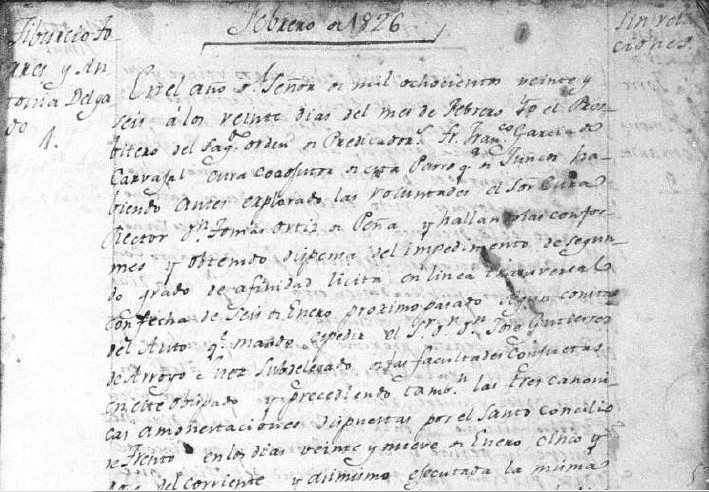 Febrero de 1826
Tiburcio To
rres y An
tonia Delga
do
1.
Sin vela
ciones.
En el año del Señor de mil ochocientos veinte y
seis a los veinte dias del mes de Febrero Yo el Pres-
bitero del Sagº orden de Predicador.s Fr. Franco Garcia de
Carvajal cura coadjutor de esta Parroq.a de Juncos ha-
biendo antes explorado las voluntades el Sor Cura
Rector Dn Tomás Ortiz de Peña y hallandolas confor-
mes y obtenido dispensa del impedimento de segun-
do grado de afinidad licita en linea transversal
con fecha de Seis de Enero proximo pasado segun consta
del Auto q.e mando expedir el Dn José Gutierrez
de Arroyo Juez Subdelegado de las facultades
en este Obispado y precediendo tamb.n las tres canoni-
cas amonestaciones dispuestas por el Santo Concilio
de Trento en los dias veinte y nueve de Enero cinco y
del corriente y asimismo ejecutada la misma